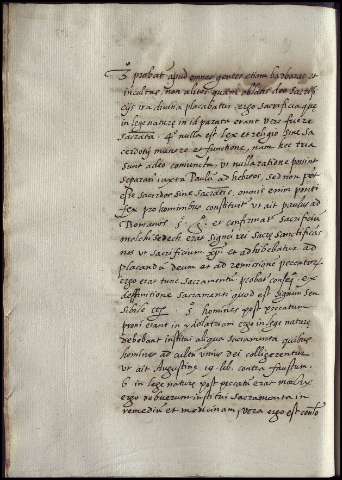 3 probat apud omnes gentes etiam barbaras et
incultas non aliter quam oblatis deo sacrifi
cijs ira divina placabatur ergo sacrificia que
in lege nature in id parata erant vere fuere
sacrata. 4º nulla est lex et religio sine sa
cerdotij munere et functione, nam hec tria
sunt adeo coniuncta ut nulla ratione possint
separari iuxta Paulū ad hebreos, sed non pot
est sacerdos sine sacratis, omnis enim ponti
fex pro hominibus constituit ut ait paulus ad
Romanos 5. g. et confirmat sacrificiū
melchisedech erat signū rei sacre sanctificās
nos ut sacrificium xpi et adhibebatur ad
placandū deum et ad remissionē peccatorū
ergo erat tunc sacramentū probat conseq. ex
deffinitione sacramenti quod est signum sen
sibile 5. homines post peccatum
proni erant in ydolatriam ergo in lege nature
debebant institui aliqua sacramenta quibus
homines ad cultū unius dei colligerentur
ut ait Augustinus 19 lib. contra faustum.
6 in lege nature post peccatū erat morbus
ergo debuerunt institui sacramenta in
remediū et medicinam, vera ergo est